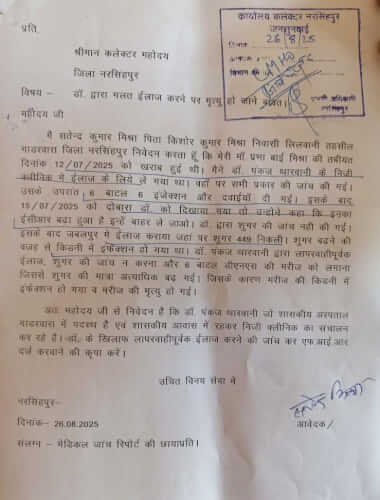 कार्यालय कलेक्टर नरसिंहपुर
जनसुनवाई
दिनांक 26/8/25
विभाग
प्रभारी अधिकारी
नरसिंहपुर
प्रति,
श्रीमान कलेक्टर महोदय
जिला नरसिंहपुर
विषय – डॉ. द्वारा गलत ईलाज करने पर मृत्यु हो जाने बाबत।
महोदय जी
मै सतेन्द्र कुमार मिश्रा पिता किशोर कुमार मिश्रा निवासी लिलवानी तहसील
गाडरवारा जिला नरसिंहपुर निवेदन करता हूँ कि मेरी माँ प्रभा बाई मिश्रा की तबीयत
दिनांक 12/07/2025 को खराब हुई थी। मैने डॉ. पंकज धारवानी के निजी
क्लीनिक में ईलाज के लिये ले गया था। वहाँ पर सभी प्रकार की जांच की गई।
उसके उपरांत 6 बाटल व इंजेक्शन और दवाईयाँ दी गई। इसके बाद
15/07/2025 को दोबारा डॉ. को दिखाया गया तो उन्होंने कहा कि इनका
ईसीआर बढ़ा हुआ है इन्हें बाहर ले जाओ। डॉ. द्वारा शुगर की जांच नही की गई।
इसके बाद जबलपुर में ईलाज कराया जहां पर शुगर 449 निकली। शुगर बढने की
वजह से किडनी में इंफेक्शन हो गया था। डॉ. पंकज धारवानी द्वारा लापरवाहीपूर्वक
ईलाज, शुगर की जांच न करना और 6 बाटल डीएनएस की मरीज को लगाना
जिससे शुगर की मात्रा अत्याधिक बढ़ गई। जिसके कारण मरीज की किडनी में
इंफेक्शन हो गया व मरीज की मृत्यु हो गई।
अतः महोदय जी से निवेदन है कि डॉ. पंकज धारवानी जो शासकीय अस्पताल
गाडरवारा में पदस्थ है एवं शासकीय आवास में रहकर निजी क्लीनिक का संचालन
कर रहे है। डॉ. के खिलाफ लापरवाहीपूर्वक ईलाज करने की जांच कर एफ.आई.आर
दर्ज करवाने की कृपा करें।
उचित विनय सेवा में
नरसिंहपुर–
दिनांक– 26.08.2025
आवेदक/
संलग्न – मेडिकल जांच रिपोर्ट की छायाप्रति।